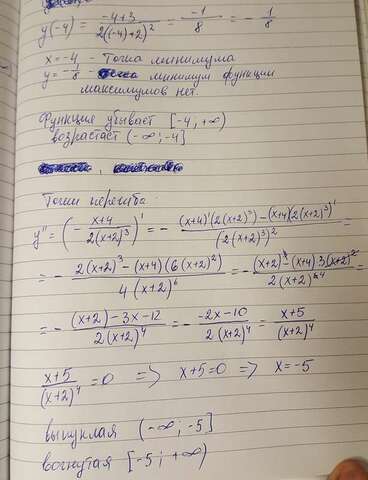 y(-4) = \frac{-4+3}{2((-4)+2)^2} = \frac{-1}{8} = -\frac{1}{8}
x = -4 - точка минимума
y = -\frac{1}{8} - минимум функции
максимумов нет
Функция убывает [-4, +∞)
возрастает (-∞; -4]
Точки перегиба
y'' = \left(-\frac{x+4}{2(x+2)^3}\right)' = -\frac{(x+4)'(2(x+2)^3) - (x+4)(2(x+2)^3)'}{(2(x+2)^3)^2} =
= -\frac{2(x+2)^3 - (x+4)(6(x+2)^2)}{4(x+2)^6} = -\frac{(x+2)^3 - (x+4)3(x+2)^2}{2(x+2)^6} =
= -\frac{(x+2) - 3x - 12}{2(x+2)^4} = -\frac{-2x-10}{2(x+2)^4} = \frac{x+5}{(x+2)^4}
\frac{x+5}{(x+2)^4} = 0 ⇒ x+5=0 ⇒ x=-5
выпуклая (-∞; -5]
вогнутая [-5; +∞)